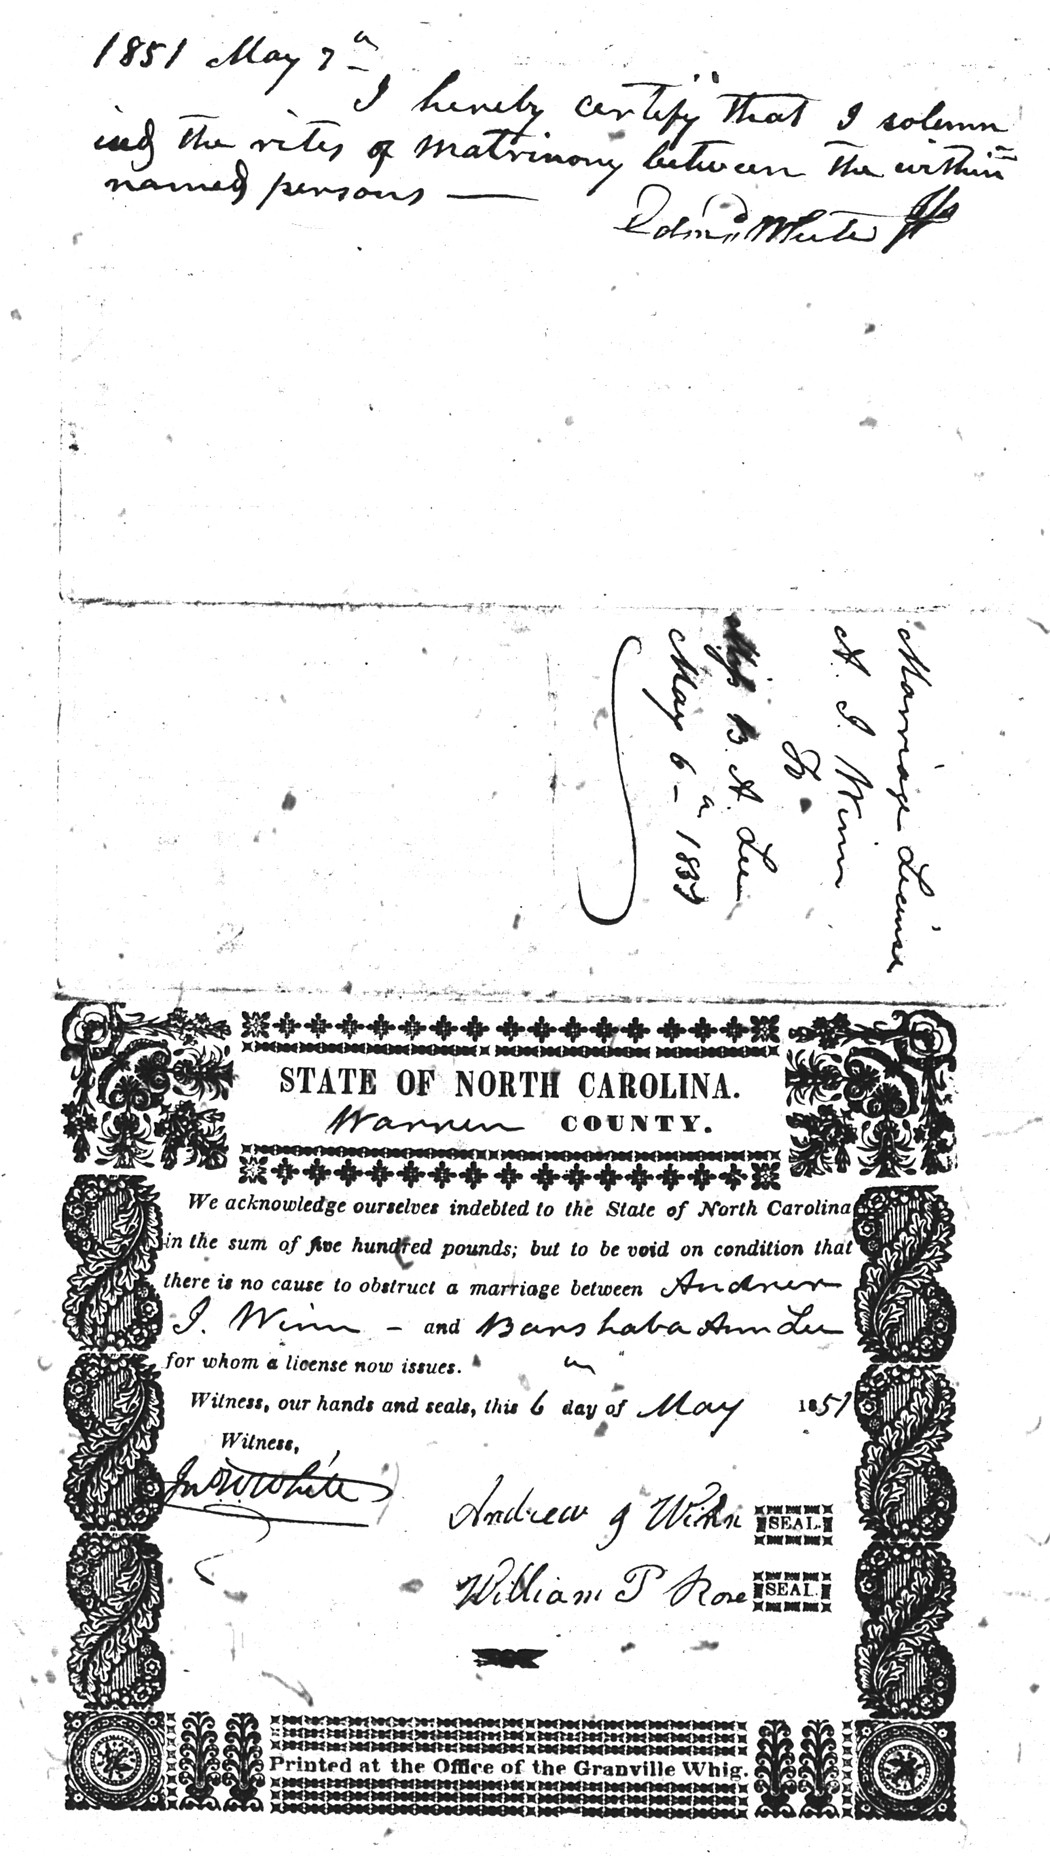 1851 May 7th
I hereby certify that I solemn
ized the rites of matrimony between the within
named persons —
Edmd White JP
Marriage License
A. J. Winn
To
Miss B. A. Lee
May 6th
STATE OF NORTH CAROLINA.
Warren COUNTY.
We acknowledge ourselves indebted to the State of North Carolina
in the sum of five hundred pounds; but to be void on condition that
there is no cause to obstruct a marriage between Andrew
J. Winn - and Barshaba Ann Lee
for whom a license now issues.
Witness, our hands and seals, this 6th day of May 1851
Witness,
Jno W White
Andrew J Winn SEAL.
William P Rose SEAL.
Printed at the Office of the Granville Whig.